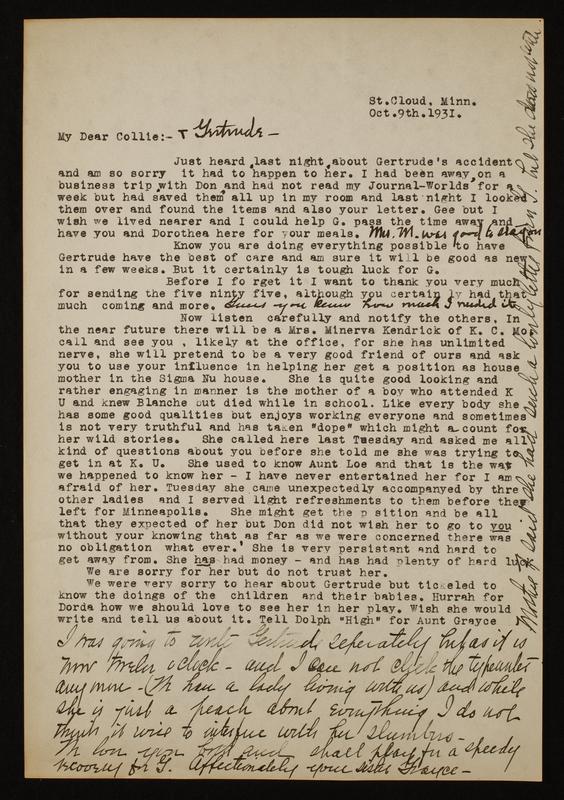 St.Cloud, Minn.
Oct.9th.1931.
My Dear Collie:- + Gertrude -
Just heard last night about Gertrude's accident
and am so sorry it had to happen to her. I had been away on a
business trip with Don and had not read my Journal-Worlds for a
week but had saved them all up in my room and last night I looked
them over and found the items and also your letter. Gee but I
wish we lived nearer and I could help G. pass the time away and
have you and Dorothea here for your meals. Mrs. M. was good to
Know you are doing everything possible to have
Gertrude have the best of care and am sure it will be good as new
in a few weeks. But it certainly is tough luck for G.
Before I fo rget it I want to thank you very much
for sending the five ninty five, although you certain ly had that
much coming and more. Guess you knew how much I needed it.
Now listen carefully and notify the others, In
the near future there will be a Mrs. Minerva Kendrick of K. C. Mo
call and see you , likely at the office, for she has unlimited
nerve, she will pretend to be a very good friend of ours and ask
you to use your influence in helping her get a position as house
mother in the Sigma Nu house. She is quite good looking and
rather engaging in manner is the mother of a boy who attended K
U and knew Blanche but died while in school. Like every body she
has some good qualities but enjoys working everyone and sometimes
is not very truthful and has taken "dope" which might a count for
her wild stories. She called here last Tuesday and asked me all
kind of questions about you before she told me she was trying to
get in at K. U. She used to know Aunt Loe and that is the way
we happened to know her - I have never entertained her for I am
afraid of her. Tuesday she came unexpectedly accompanied by thre
other ladies and I served light refreshments to them before they
left for Minneapolis. She might get the p sition and be all
that they expected of her but Don did not wish her to go to you
without your knowing that as far as we were concerned there was
no obligation what ever.' She is very persistant and hard to
get away from. She has had money - and has had plenty of hard luck
We are sorry for her but do not trust her.
We were very sorry to hear about Gertrude but tickeled to
know the doings of the children and their babies. Hurrah for
Dorda how we should love to see her in her play. Wish she would
write and tell us about it. Tell Dolph "High" for Aunt Grayce
I was going to write Gertrude seperately but as it is
now twelve o'clock - and I can not click the typewriter
any more - (We have a lady living with us) and while
she is just a peach about everything I do not
think it wise to interfere with her slumbers -
We love you both and shall pray for a speedy
recovery for G. Affectionately your sister Grayce -
Mother F. said she had such a lovely letter from G.